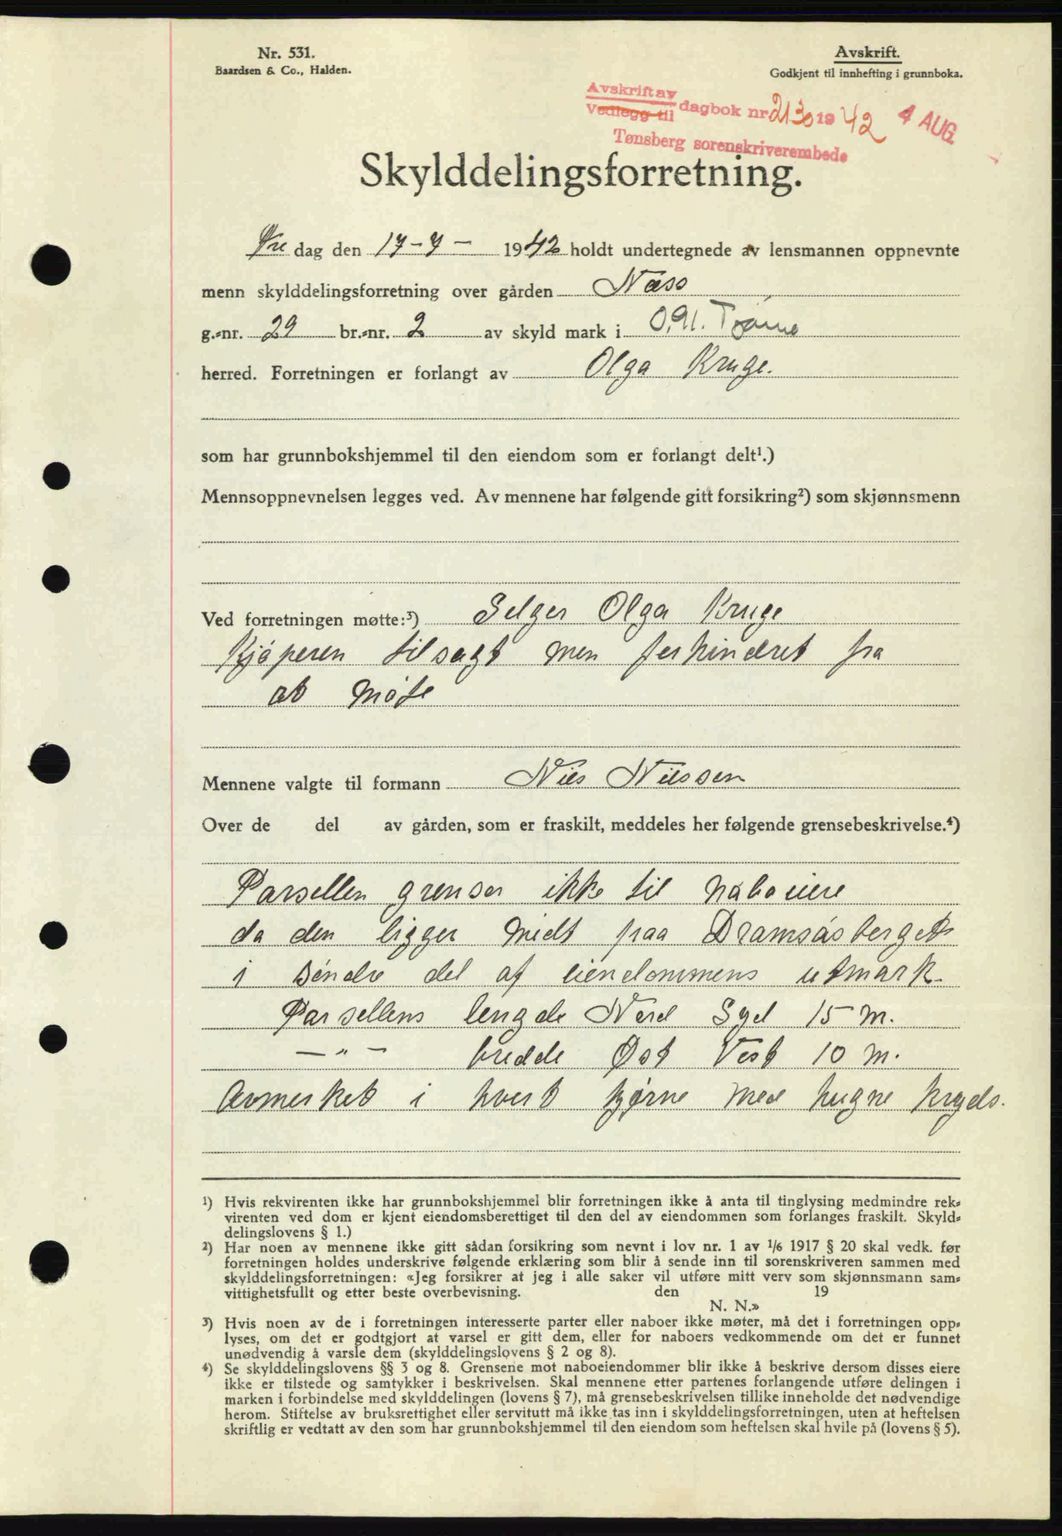 Nr. 531.
Baardsen & Co., Halden.
Avskrift.
Godkjent til innhefting i grunnboka.
Avskrift av
Vedlegg til dagbok nr 2130 1942 4 AUG.
Tønsberg sorenskriverembede
Skylddelingsforretning.
Fre dag den 17-7- 1942 holdt undertegnede av lensmannen oppnevnte
menn skylddelingsforretning over gården Næss
g.-nr. 29 br.-nr. 2 av skyld mark i 0,91. Tjøme
herred. Forretningen er forlangt av Olga Kruge.
som har grunnbokshjemmel til den eiendom som er forlangt delt¹.)
Mennsoppnevnelsen legges ved. Av mennene har følgende gitt forsikring²) som skjønnsmenn
Ved forretningen møtte:³) Selger Olga Kruge
Kjøperen tilsagt men forhindret fra
at møte
Mennene valgte til formann Nils Nilssen
Over de del av gården, som er fraskilt, meddeles her følgende grensebeskrivelse.⁴)
Parsellen grenser ikke til naboeiere
da den ligger midt paa Dramsåsberget
i søndre del af eiendommens utmark.
Parsellens lengde Nord Syd 15 m.
—"— bredde Øst Vest 10 m.
Avmerket i hvert hjørne med hugne kryds.
¹) Hvis rekvirenten ikke har grunnbokshjemmel blir forretningen ikke å anta til tinglysing medmindre rek-
virenten ved dom er kjent eiendomsberettiget til den del av eiendommen som forlanges fraskilt. Skyld-
delingslovens § 1.)
²) Har noen av mennene ikke gitt sådan forsikring som nevnt i lov nr. 1 av 1/6 1917 § 20 skal vedk. før
forretningen holdes underskrive følgende erklæring som blir å sende inn til sorenskriveren sammen med
skylddelingsforretningen: «Jeg forsikrer at jeg i alle saker vil utføre mitt verv som skjønnsmann sam-
vittighetsfullt og etter beste overbevisning. den 19
N. N.»
³) Hvis noen av de i forretningen interesserte parter eller naboer ikke møter, må det i forretningen opp-
lyses, om det er godtgjort at varsel er gitt dem, eller for naboers vedkommende om det er funnet
unødvendig å varsle dem (skylddelingslovens § 2 og 8).
⁴) Se skylddelingslovens §§ 3 og 8. Grensene mot naboeiendommer blir ikke å beskrive dersom disses eiere
ikke er tilstede og samtykker i beskrivelsen. Skal mennene etter partenes forlangende utføre delingen i
marken i forbindelse med skylddelingen (lovens § 7), må grensebeskrivelsen tillike inneholde det nødvendige
herom. Stiftelse av bruksrettighet eller servitutt må ikke tas inn i skylddelingsforretningen, uten at heftelsen
skriftlig er vedtatt av den som har grunnbokshjemmel til den eiendom som heftelsen skal hvile på (lovens § 5).